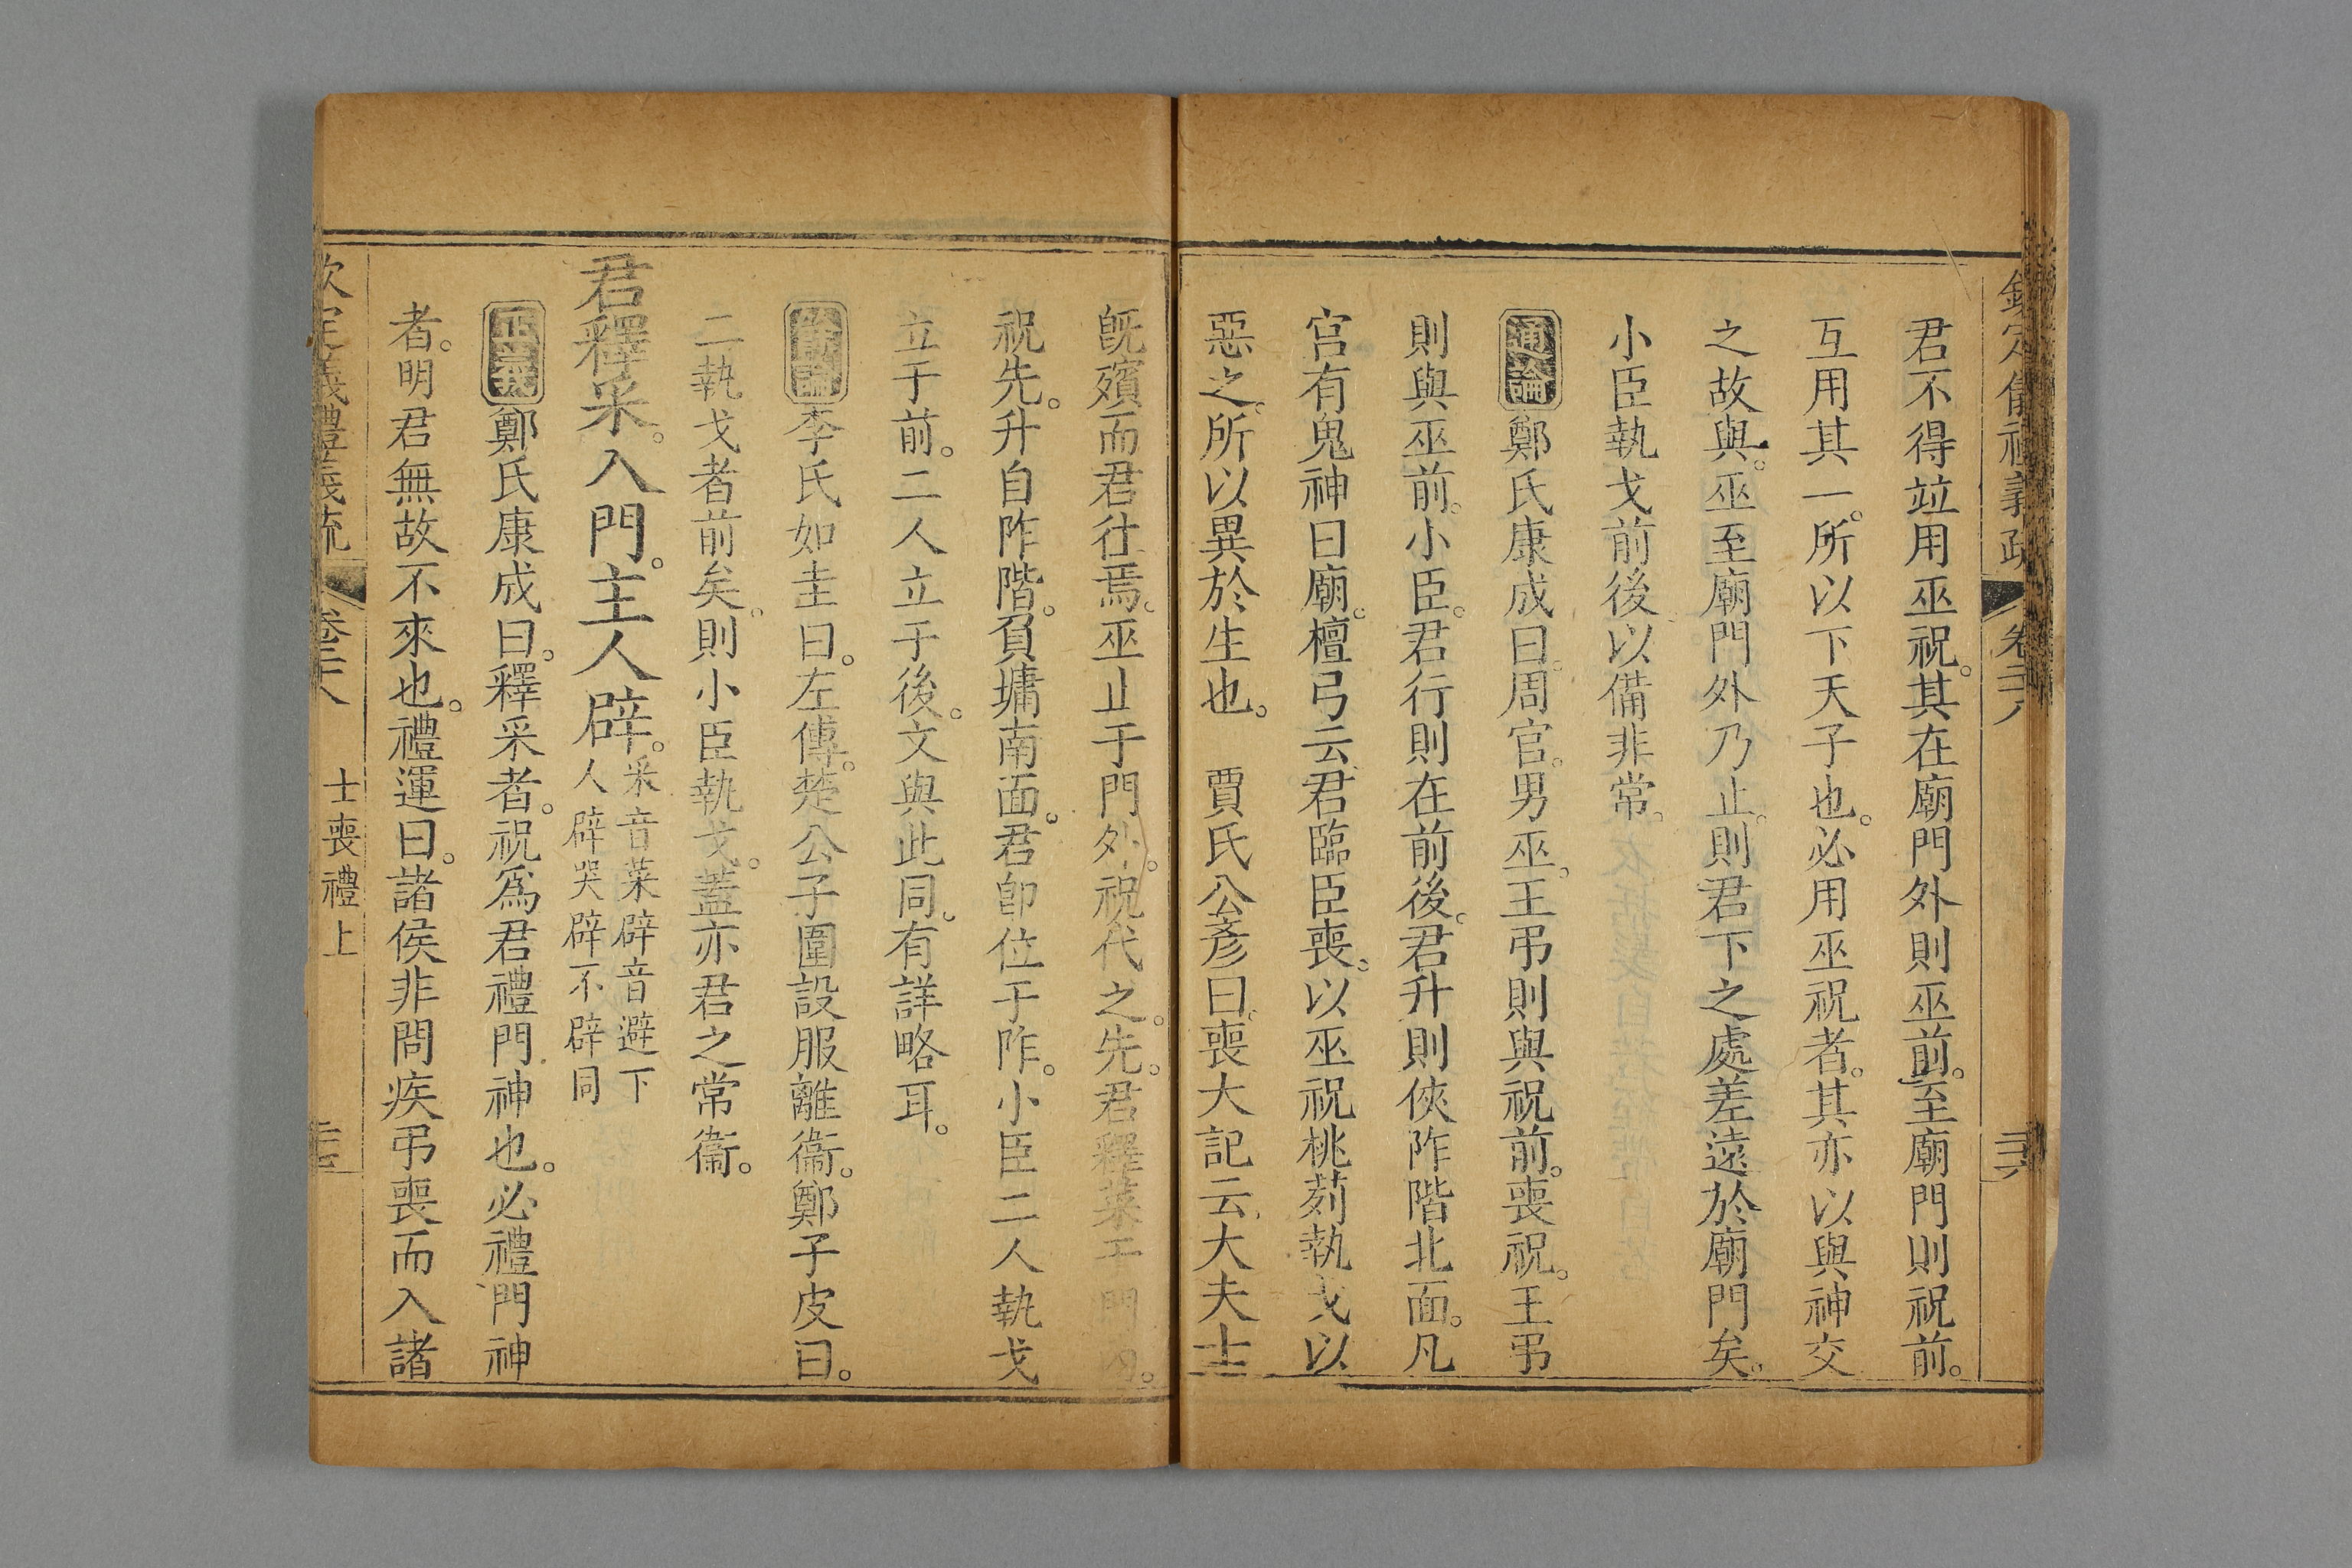 欽定儀禮義疏 卷二十八
君不得竝用巫祝。其在廟門外則巫前。至廟門則祝前。
互用其一。所以下天子也。必用巫祝者。其亦以與神交
之故與。巫至廟門外乃止。則君下之處差遠於廟門矣。
小臣執戈前後以備非常。
通論鄭氏康成曰。周官。男巫。王弔則與祝前。喪祝。王弔
則與巫前。小臣。君行則在前後。君升則俠阼階北面。凡
宮有鬼神曰廟。檀弓云。君臨臣喪。以巫祝桃茢執戈以
惡之。所以異於生也。 賈氏公彥曰。喪大記云。大夫士
旣殯而君往焉。巫止于門外。祝代之。先。君釋菜于門內。
祝先。升自阼階。負墉南面。君卽位于阼。小臣二人執戈
立于前。二人立于後。文與此同。有詳略耳。
餘論李氏如圭曰。左傳。楚公子圍設服離衞。鄭子皮曰。
二執戈者前矣。則小臣執戈。蓋亦君之常衞。
君釋采。入門。主人辟。采音菜辟音避下
人辟哭辟不辟同
正義鄭氏康成曰。釋采者。祝爲君禮門神也。必禮門神
者。明君無故不來也。禮運曰。諸侯非問疾弔喪而入諸
欽定儀禮義疏 卷二十八 士喪禮上